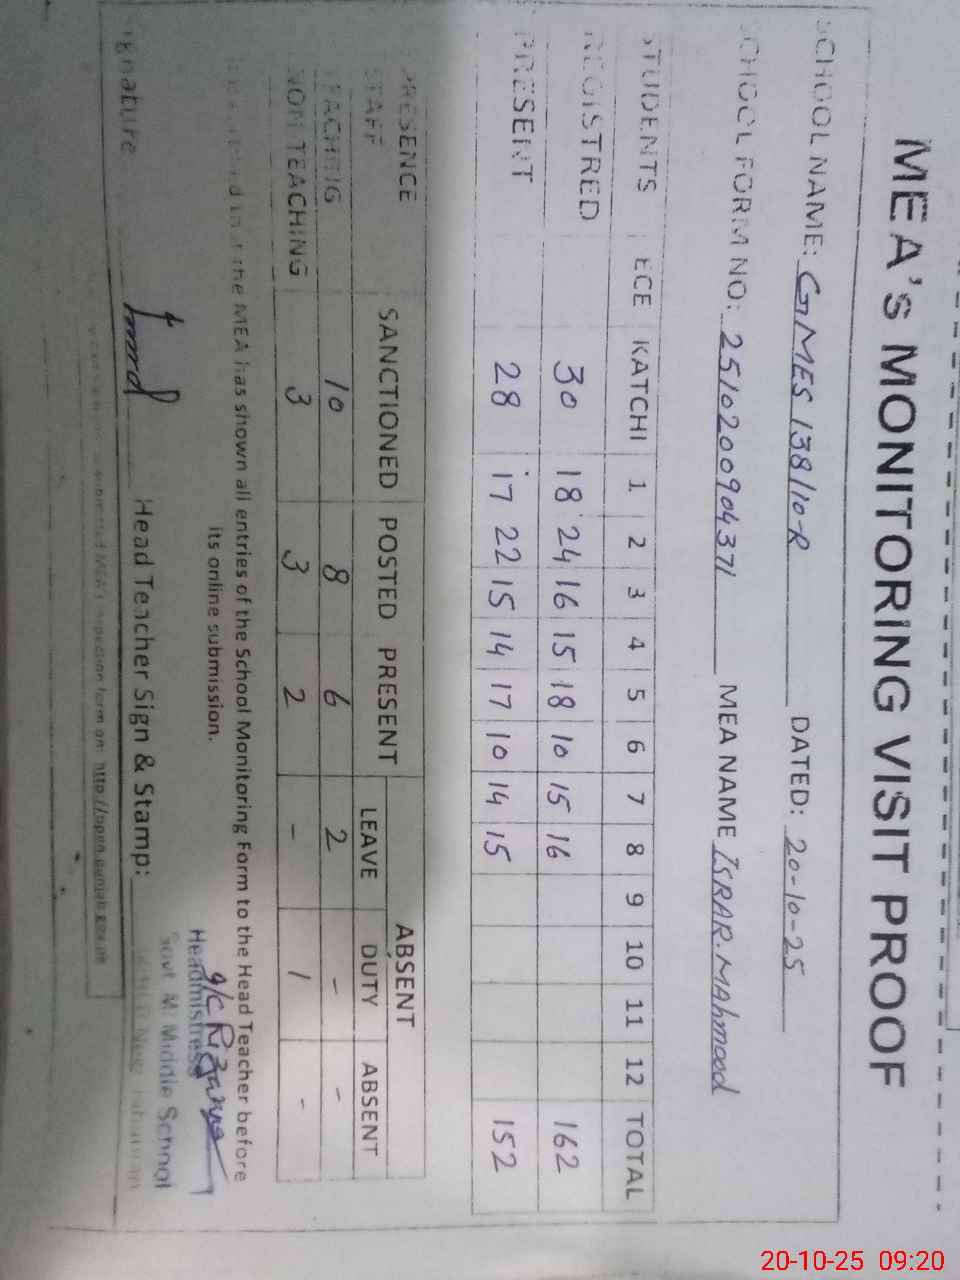 MEA's MONITORING VISIT PROOF
SCHOOL NAME: GMES 138/10-R DATED: 20-10-25
SCHOOL FORM NO: 2510200904371 MEA NAME ISRAR. MAhmood
STUDENTS ECE KATCHI 1 2 3 4 5 6 7 8 9 10 11 12 TOTAL
REGISTRED 30 18 24 16 15 18 10 15 16 162
PRESENT 28 17 22 15 14 17 10 14 15 152
PRESENCE SANCTIONED POSTED PRESENT ABSENT
STAFF LEAVE DUTY ABSENT
TEACHING 10 8 6 2 - -
NON TEACHING 3 3 2 - 1 -
the MEA has shown all entries of the School Monitoring Form to the Head Teacher before
its online submission.
g/c
Headmistress
Govt M. Middle School
Signature Head Teacher Sign & Stamp:
submitted MEA's inspection form on: http://open.punjab.gov.pk
20-10-25 09:20